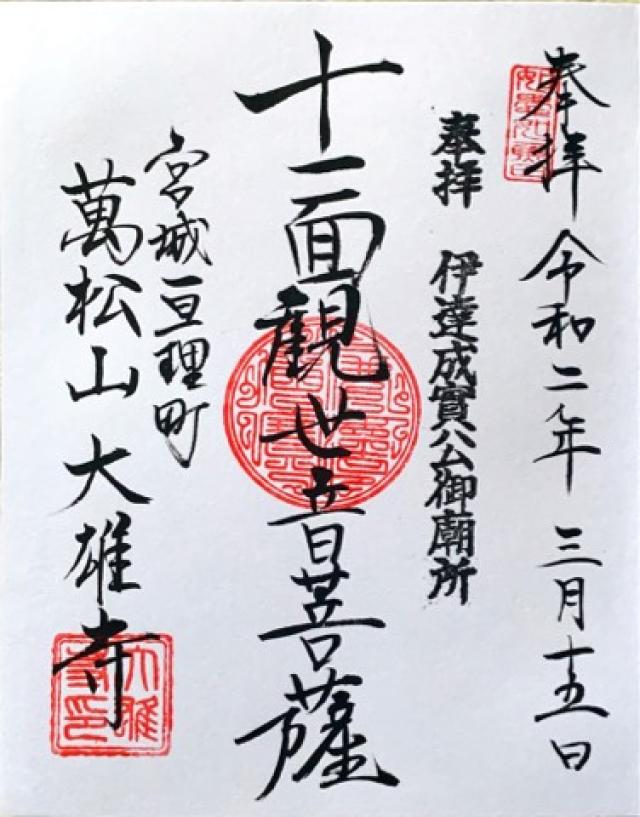 奉拝 令和二年 三月十五日
奉拝 伊達成實公御廟所
十一面觀世音菩薩
宮城亘理町
萬松山大雄寺
大雄寺印